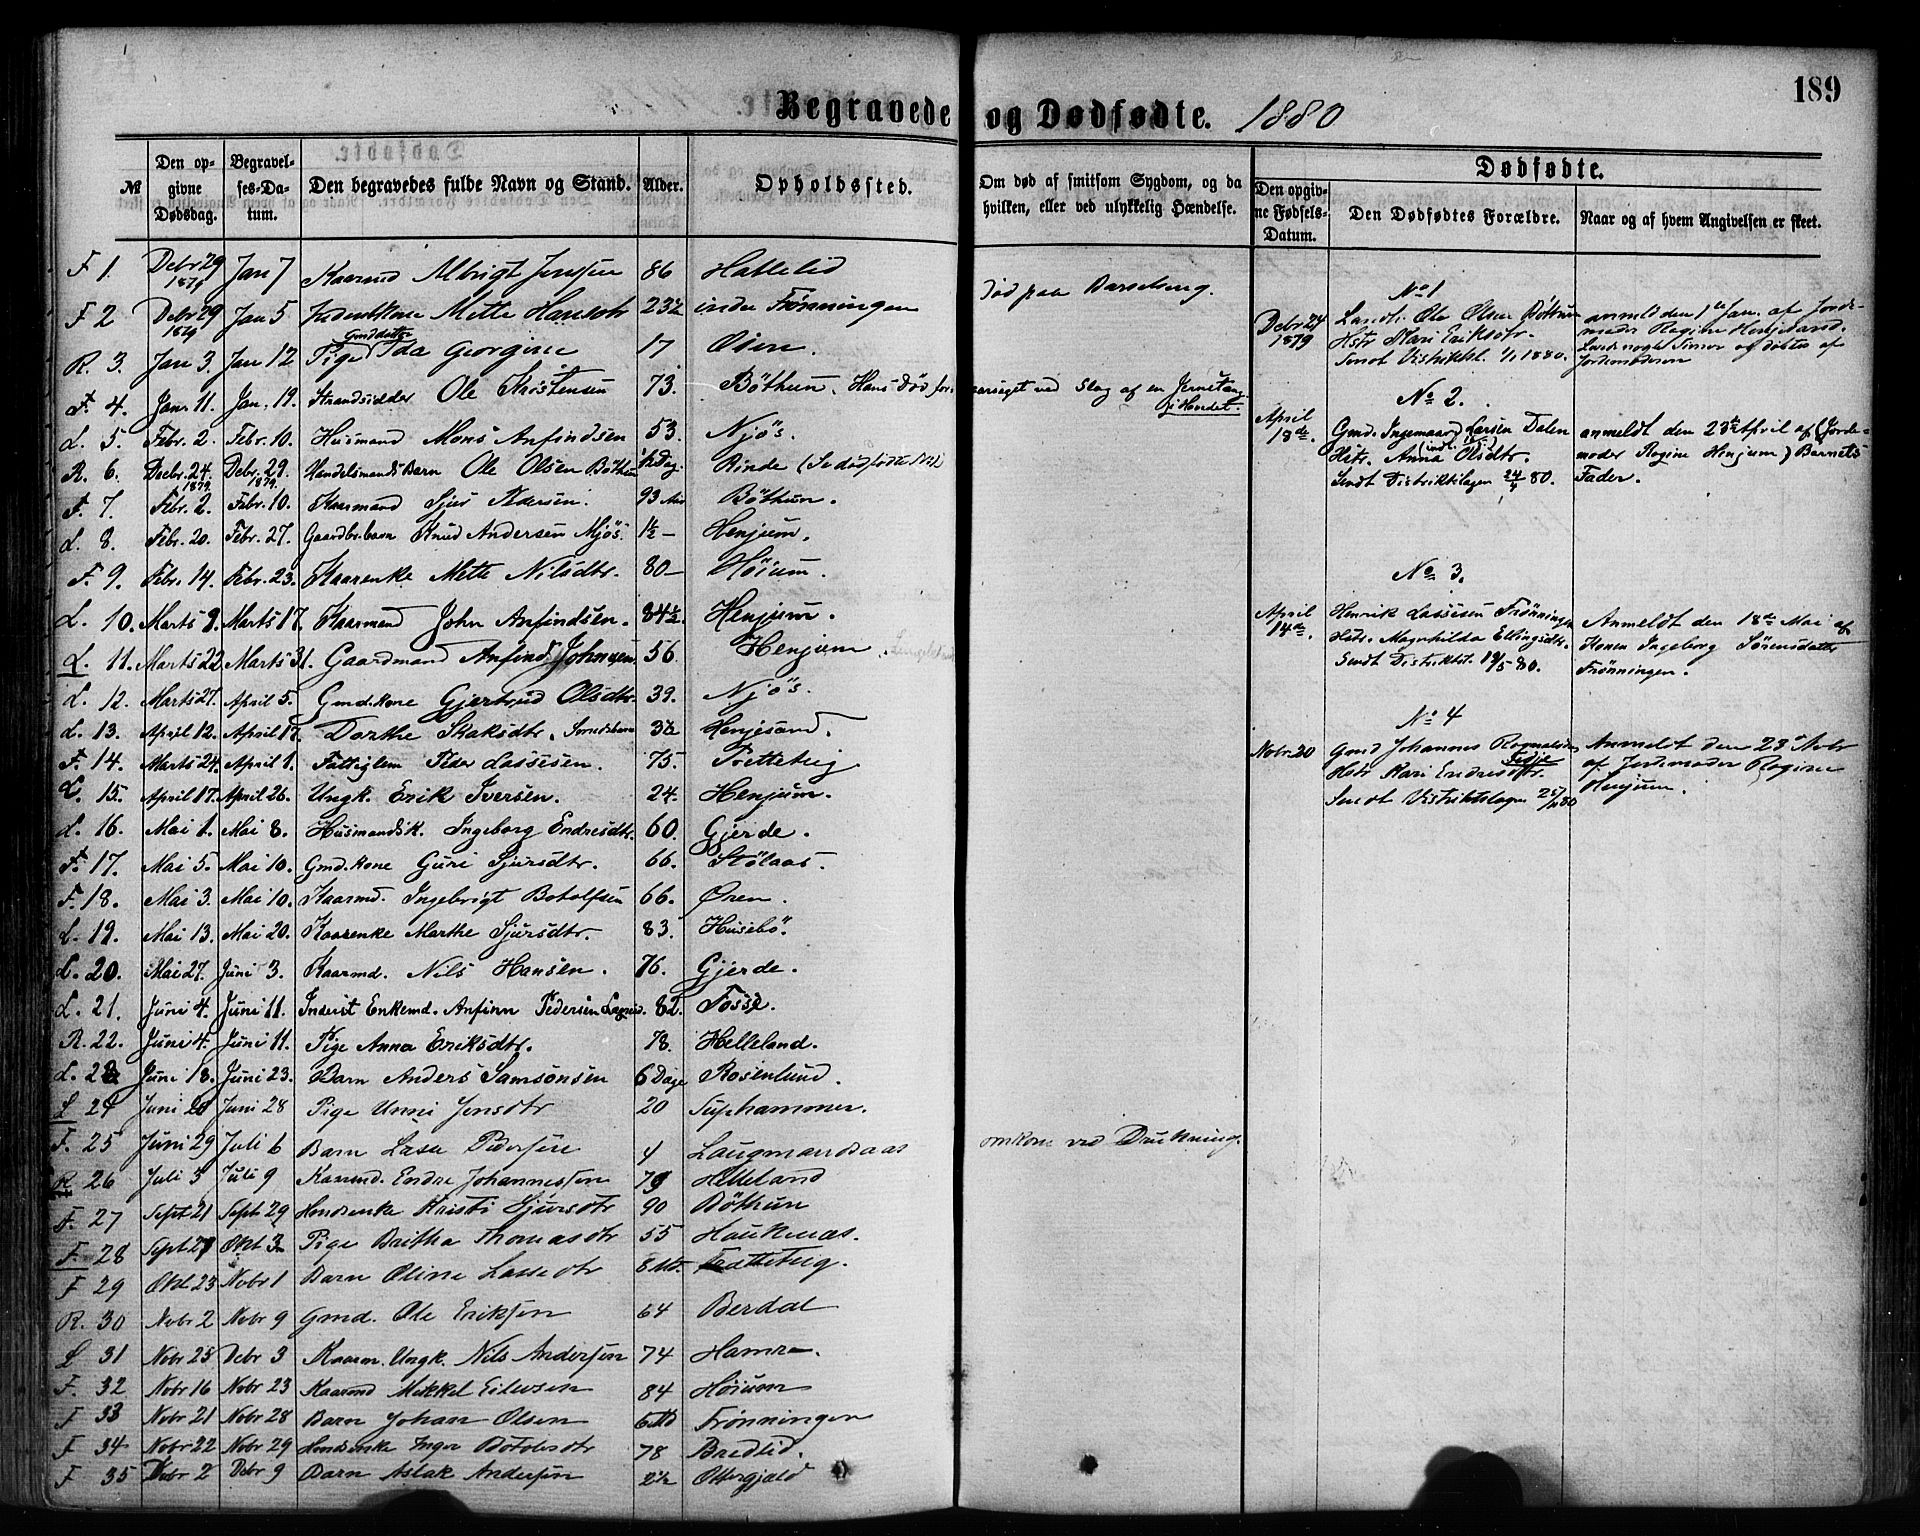 189
Begravede og Dødfødte. 1880
Dødfødte.
№ | Den opgivne Dødsdag. | Begravelses-Datum. | Den begravedes fulde Navn og Stand. | Alder. | Opholdssted. | Om død af smitsom Sygdom, og da hvilken, eller ved ulykkelig Hændelse. | Den opgivne Fødsels-Datum. | Den Dødfødtes Forældre. | Naar og af hvem Angivelsen er skeet.
F 1. Debr 29 1879 Jan 7 Kaarmd Albrigt Jensen 86 Hattelid
F 2 Debr 29 1879 Jan 5 Mette Hansdtr 23½ indre Frønningen død paa Barselseng.
R. 3. Jan 3. Jan 12 Pige Gmddatter Ida Georgine 17 Øien.
F. 4. Jan. 11. Jan. 19. Strandsidder Ole Kristensen 73. Bøthun. Hans Død foraarsaget ved Slag af en Jernstang i Hovdet.
L. 5. Febr. 2. Febr. 10. Husmand Mons Anfindsen 53. Njøs.
R. 6. Decbr. 24. 1879. Debr. 29. 1879. Handelsmands Barn Ole Olsen Bøthun ½ Dag. Rinde (Se dødfødte N 1)
F. 7. Febr. 2. Febr. 10. Kaarmand Sjur Pedersen. 93 Aar Bøthun.
L. 8. Febr. 20. Febr. 27. Gaardbr. barn Knud Andersen Njøs. 1½ — Henjum.
F. 9. Febr. 14. Febr. 23. Kaarenke Mette Nilsdtr. 80 — Høium.
L. 10. Marts 9. Marts 17. Kaarmand John Anfindsen. 84½ Henjum.
L. 11. Marts 22 Marts 31. Gaardmand Anfind Johnsen 56. Henjum.
L. 12. Marts 27. April 5. Gmd.kone Gjertrud Olsdtr. 39. Njøs.
L. 13. April 12. April 17. Dorthe Staksdtr. 3½ Henjesand.
F. 14. Marts 24. April 1. Fattiglem Peder Lassesen. 75. Tvetteteig
L. 15. April 17. April 26. Ungk. Erik Iversen. 24. Henjum.
L. 16. Mai 1. Mai 8. Husmandsk. Ingeborg Endresdtr. 60. Gjerde.
F. 17. Mai 5. Mai 10. Gmd.kone Guri Sjursdtr. 66. Stølaas.
F. 18. Mai 3. Mai 10. Kaarmd. Ingebrigt Botolfsen 66. Øren.
L. 19. Mai 13. Mai 20. Kaarenke Marthe Sjursdtr. 83. Husebø
L. 20. Mai 27. Juni 3. Kaarmd. Nils Hansen. 76. Gjerde.
L. 21. Juni 4. Juni 11. Inderst Enkemd. Anfinn Pedersen 82. Fosse.
R. 22. Juni 4. Juni 11. Pige Anna Eriksdtr. 78. Helleland.
L. 23 Juni 18. Juni 23. Barn Anders Samsonsen 6 Dage Rosenlund.
L 24 Juni 20 Juni 28 Pige Unni Jensdtr 20 Suphammer.
F. 25 Juni 29 Juli 6 Barn Lasse Pedersen 4 Laugmandsaas omkom ved Drukning.
R 26 Juli 3 Juli 9 Kaarmd. Endre Johannessen 79 Helleland
F. 27 Sept 21 Sept 29 Kristi Sjursdtr 90 Bøthun
F. 28 Sept 27 Okt 3 Pige Britha Thomasdtr 55 Haukenæs.
F 29 Okt 23 Nobr 1 Barn Oline Lassedtr 8 Md. Trætteteig.
R. 30 Nobr 2 Nobr 9 Gmd. Ole Eriksen 64 Berdal
L 31 Nobr 25 Debr 3 Kaarm. Ungk. Nils Andersen 74 Hamre.
F. 32 Nobr 16 Nobr 23 Kaarmd Mikkel Eilevsen 84 Høium
F 33 Nobr 21 Nobr 28 Barn Johan Olsen 6 Md Frønningen
F 34 Nobr 22 Nobr 29 Inger Botolvsdtr 78 Bredlid.
F 35 Debr 2 Debr 9 Barn Aslak Andersen 2½ Ottergjæld
No 1
Debr 24 1879 Landh. Ole Olsen Bøthun
Hstr Kari Eriksdtr.
Sendt Distriktsl. 1/1 1880.
anmeldt den 1ste Jan. af Jordemoder Regine Henjesand.
No 2.
April 18de. Gmd. Ingemaar Larsen Dalen
Hstr. Anna Olsdtr.
Sendt Distriktslægen 24/4 80.
anmeldt den 23de April af (Jordemoder Regine Henjum) Barnets Fader.
No 3.
April 14de. Henrik Lassesen Frønningen
Hstr. Magnhilda Ellingsdtr.
Sendt Distriktsl. 19/5 80.
Anmeldt den 18de Mai af Konen Ingeborg Sørensdatter Frønningen.
No 4
Nobr. 20 Gmd Johannes
Hstr Kari Endresdtr.
Sendt Distriktslægen 25/11 80
Anmeldt den 23 Nobr af Jordemoder Regine Henjum.